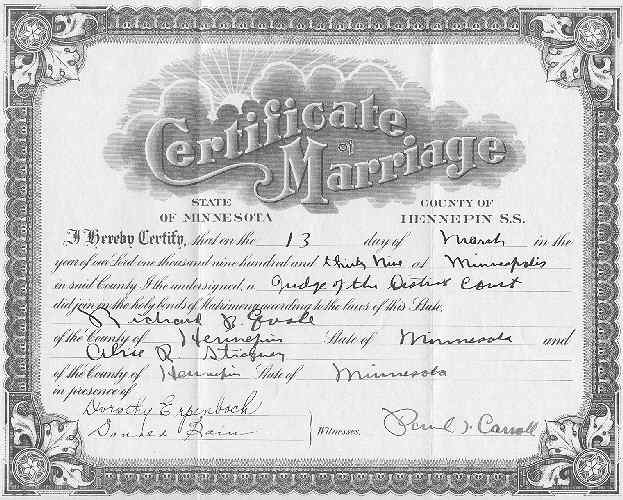 Certificate
of
Marriage
STATE OF MINNESOTA
COUNTY OF HENNEPIN S.S.
I Hereby Certify, that on the 13 day of March in the
year of our Lord one thousand nine hundred and thirty nine at Minneapolis
in said County I the undersigned, a Judge of the District Court
did join in the holy bonds of Matrimony according to the laws of this State.
Richard
of the County of Hennepin State of Minnesota and
of the County of Hennepin State of Minnesota
in presence of
Dorothy Erpenbach
Witnesses. Carroll